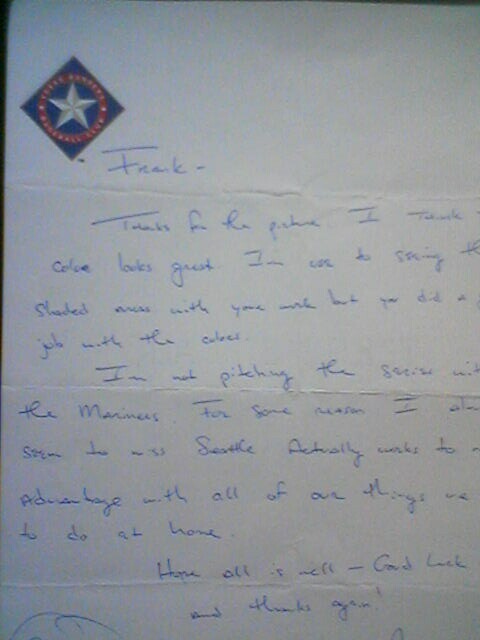 TEXAS RANGERS
BASEBALL CLUB
Frank -
Thanks for the picture. I think
color looks great. I'm use to seeing the
shaded ones with your work but you did a
job with the colors.
I'm not pitching the series with
the Mariners. For some reason I
seem to miss Seattle. Actually works to
Advantage with all of our things we
to do at home.
Hope all is well - Good Luck
and thanks again!